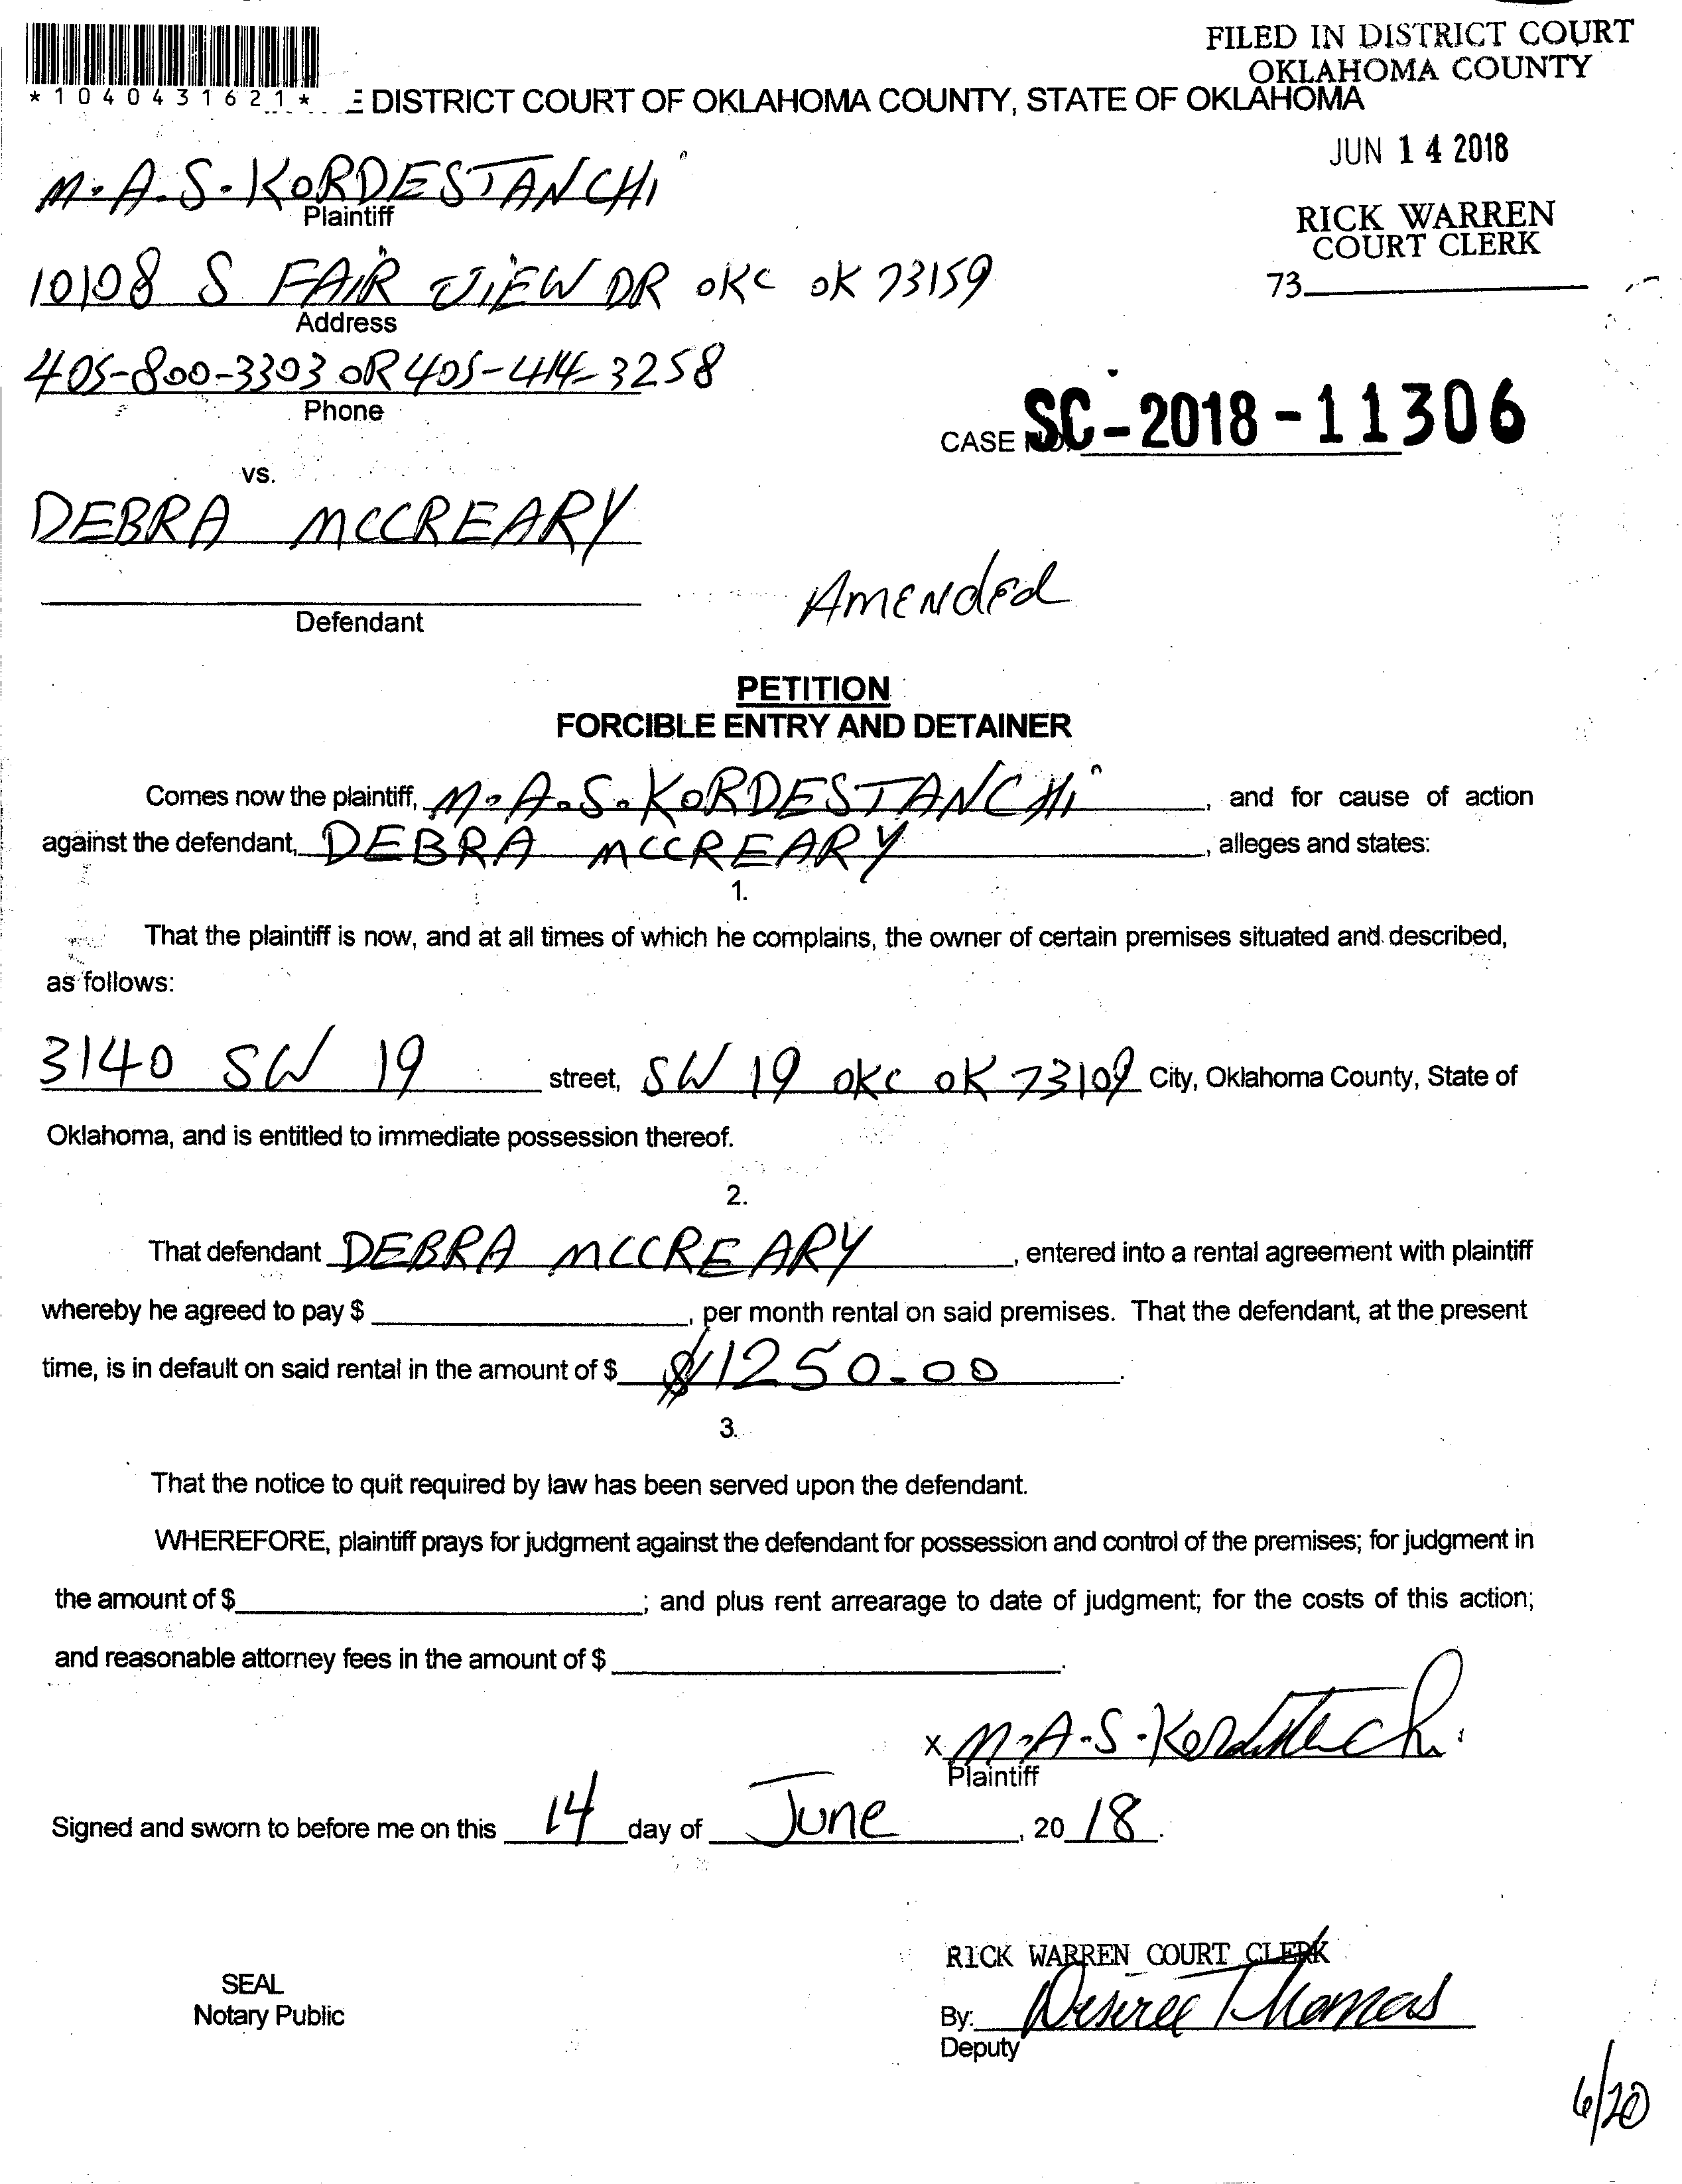 FILED IN DISTRICT COURT
OKLAHOMA COUNTY
*1040431621*
DISTRICT COURT OF OKLAHOMA COUNTY, STATE OF OKLAHOMA
JUN 14 2018
M.A.S. KORDESTANCHI
Plaintiff
RICK WARREN
COURT CLERK
10108 S FAIR VIEW DR OKC OK 73159
73
Address
405-800-3303 OR 405-414-3258
Phone
CASE NO. SC-2018-11306
vs.
DEBRA MCCREARY
Amended
Defendant
PETITION
FORCIBLE ENTRY AND DETAINER
Comes now the plaintiff, M.A.S. KORDESTANCHI, and for cause of action
against the defendant, DEBRA MCCREARY, alleges and states:
1.
That the plaintiff is now, and at all times of which he complains, the owner of certain premises situated and described,
as follows:
3140 SW 19 street, SW 19 OKC OK 73109 City, Oklahoma County, State of
Oklahoma, and is entitled to immediate possession thereof.
2.
That defendant DEBRA MCCREARY, entered into a rental agreement with plaintiff
whereby he agreed to pay $ , per month rental on said premises. That the defendant, at the present
time, is in default on said rental in the amount of $ $1250.00.
3.
That the notice to quit required by law has been served upon the defendant.
WHEREFORE, plaintiff prays for judgment against the defendant for possession and control of the premises; for judgment in
the amount of $ ; and plus rent arrearage to date of judgment; for the costs of this action;
and reasonable attorney fees in the amount of $ .
X M.A.S. Kordestanchi
Plaintiff
Signed and sworn to before me on this 14 day of June, 20 18.
RICK WARREN COURT CLERK
SEAL
Notary Public
By: Desiree Thomas
Deputy
6/20